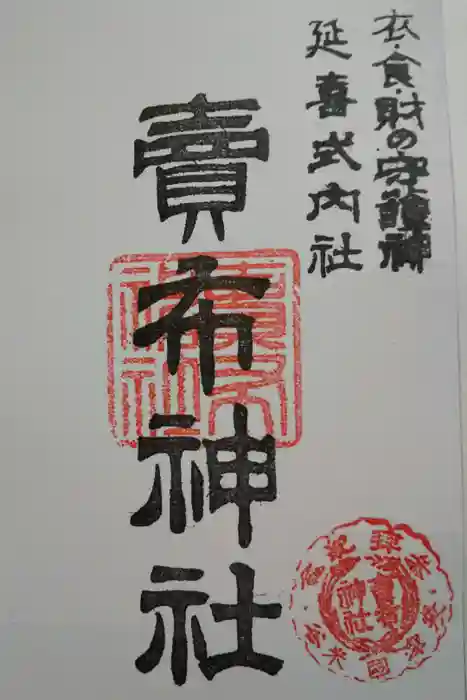 衣・食・財の守護神
延喜式内社
賣布神社
賣布神社